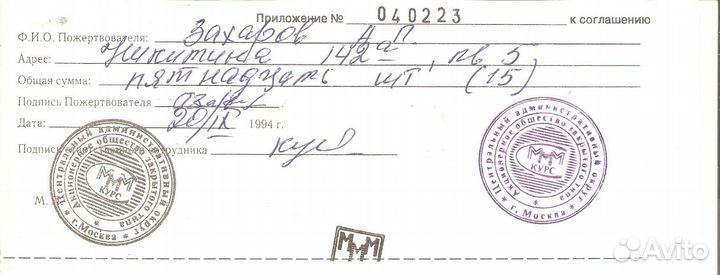 Приложение № 040223 к соглашению
Ф.И.О. Пожертвователя: Захаров А.П.
Адрес: Никитина 142а, кв 5
Общая сумма: пятнадцать шт (15)
Подпись Пожертвователя
Дата: 20/IX 1994 г.
Подпись сотрудника
М.
Центральный административный округ
* г. Москва *
Акционерное общество закрытого типа
МММ
КУРС
Центральный административный округ
* г. Москва *
Акционерное общество закрытого типа
МММ
КУРС
МММ
Avito